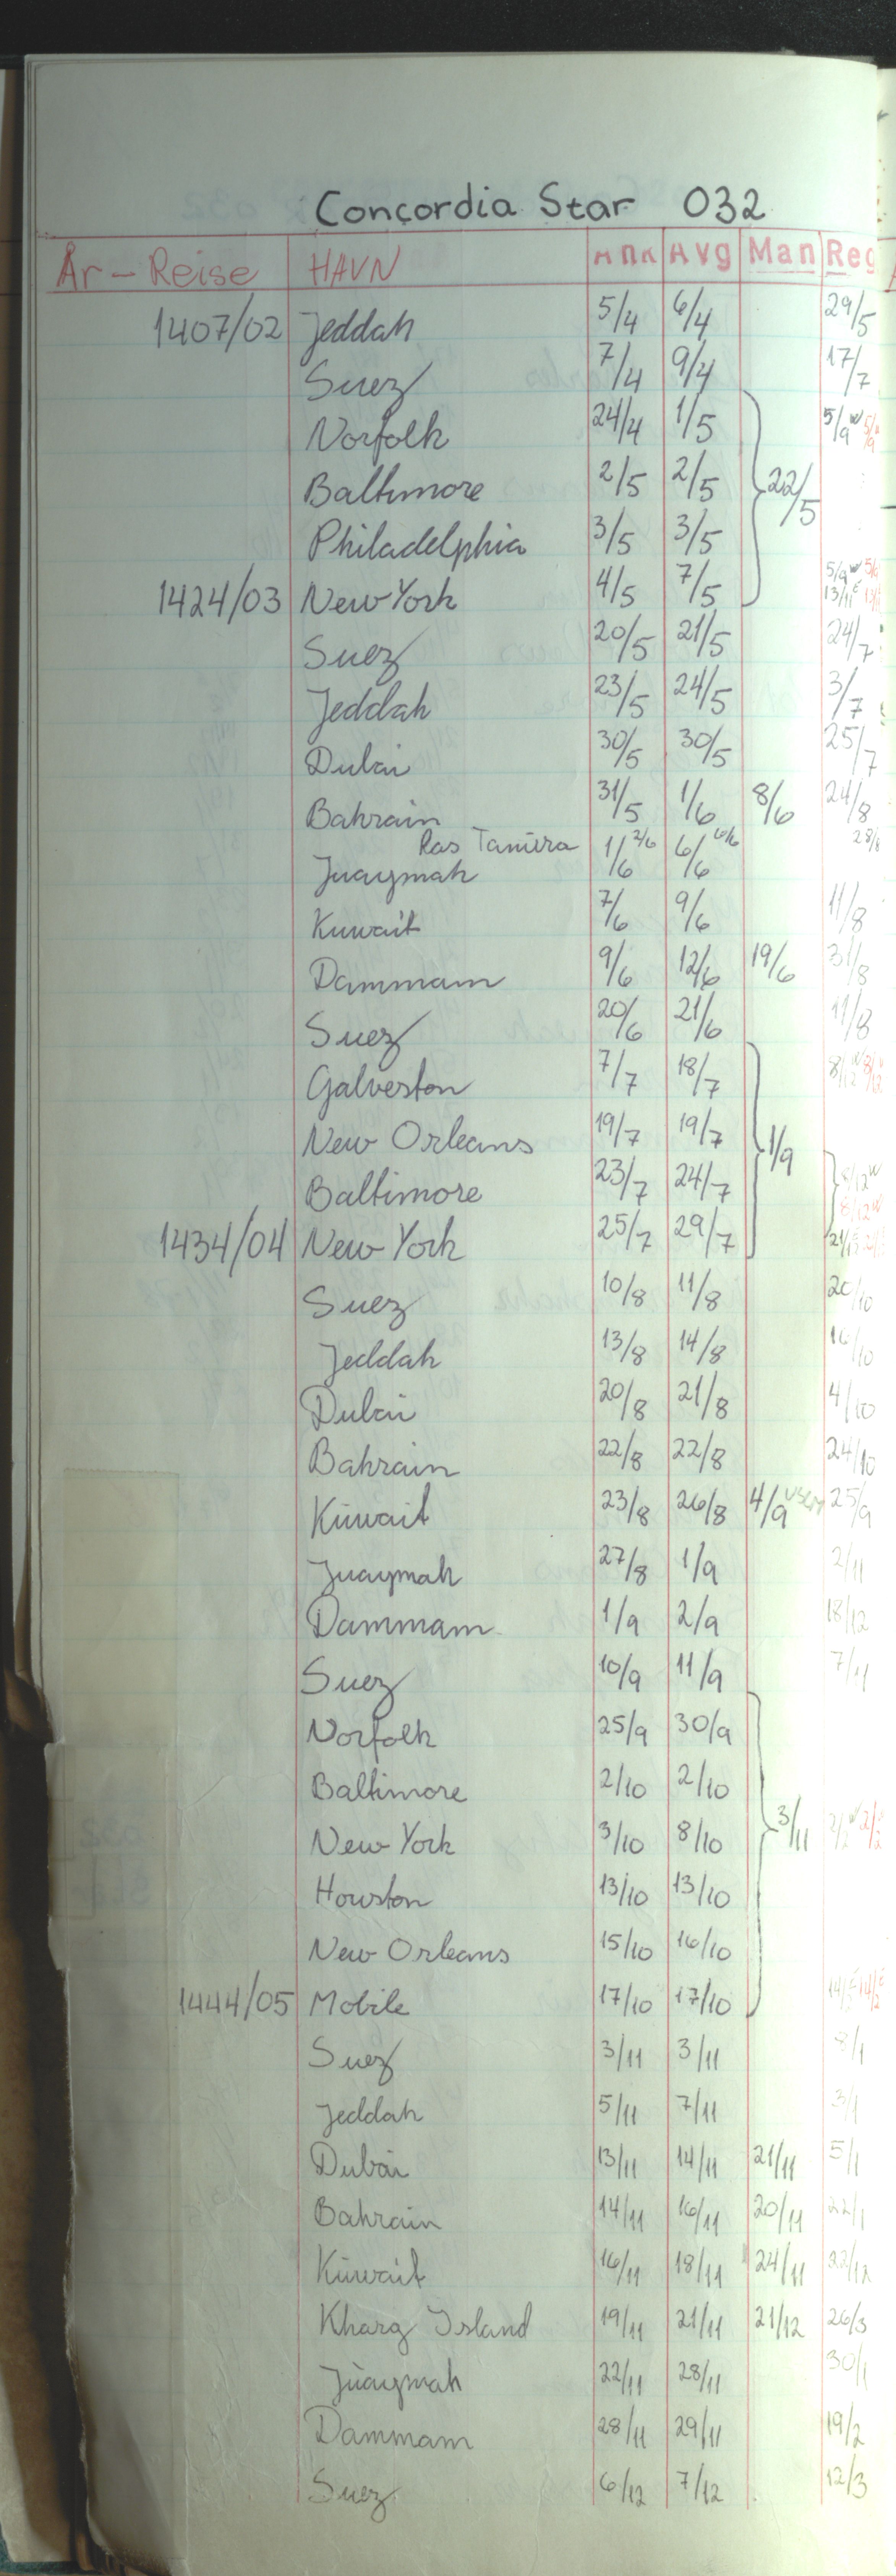 Concordia Star 032
År - Reise HAVN Ank Avg Man Reg
1407/02 Jeddah 5/4 6/4 29/5
Suez 7/4 9/4 17/7
Norfolk 24/4 1/5 5/9 w 5/9
Baltimore 2/5 2/5 22/5
Philadelphia 3/5 3/5
1424/03 New York 4/5 7/5 5/9 w 13/11 E
Suez 20/5 21/5 24/7
Jeddah 23/5 24/5 3/7
Dubai 30/5 30/5 25/7
Bahrain 31/5 1/6 8/6 24/8
Ras Tanura 2/6 6/6 28/8
Juaymah 1/6 6/6
Kuwait 7/6 9/6 11/8
Dammam 9/6 12/6 19/6 31/8
Suez 20/6 21/6 11/8
Galveston 7/7 18/7
New Orleans 19/7 19/7 1/9
Baltimore 23/7 24/7 8/12 w
1434/04 New York 25/7 29/7
Suez 10/8 11/8 20/10
Jeddah 13/8 14/8 16/10
Dubai 20/8 21/8 4/10
Bahrain 22/8 22/8 24/10
Kuwait 23/8 26/8 4/9 25/9
Juaymah 27/8 1/9 2/11
Dammam 1/9 2/9 18/12
Suez 10/9 11/9 7/11
Norfolk 25/9 30/9
Baltimore 2/10 2/10
New York 3/10 8/10 3/11
Houston 13/10 13/10
New Orleans 15/10 16/10
1444/05 Mobile 17/10 17/10
Suez 3/11 3/11 8/1
Jeddah 5/11 7/11 3/1
Dubai 13/11 14/11 21/11 5/1
Bahrain 14/11 16/11 20/11 22/1
Kuwait 16/11 18/11 24/11 22/12
Kharg Island 19/11 21/11 21/12 26/3
Juaymah 22/11 28/11 30/1
Dammam 28/11 29/11 19/2
Suez 6/12 7/12 12/3